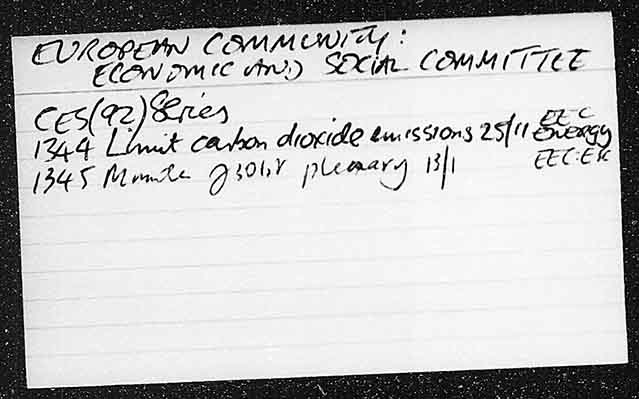 EUROPEAN COMMUNITY:
ECONOMIC AND SOCIAL COMMITTEE
CES(92) Series
1344 Limit carbon dioxide emissions 25/11 EEC Energy
1345 plenary 13/1 EEC:ESC